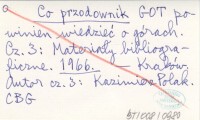 Co przodownik GOT po-
winien wiedzieć o górach.
Cz. 3: Materiały bibliogra-
ficzne. 1966. Kraków.
Autor cz. 3: Kazimierz Polak.
CBG